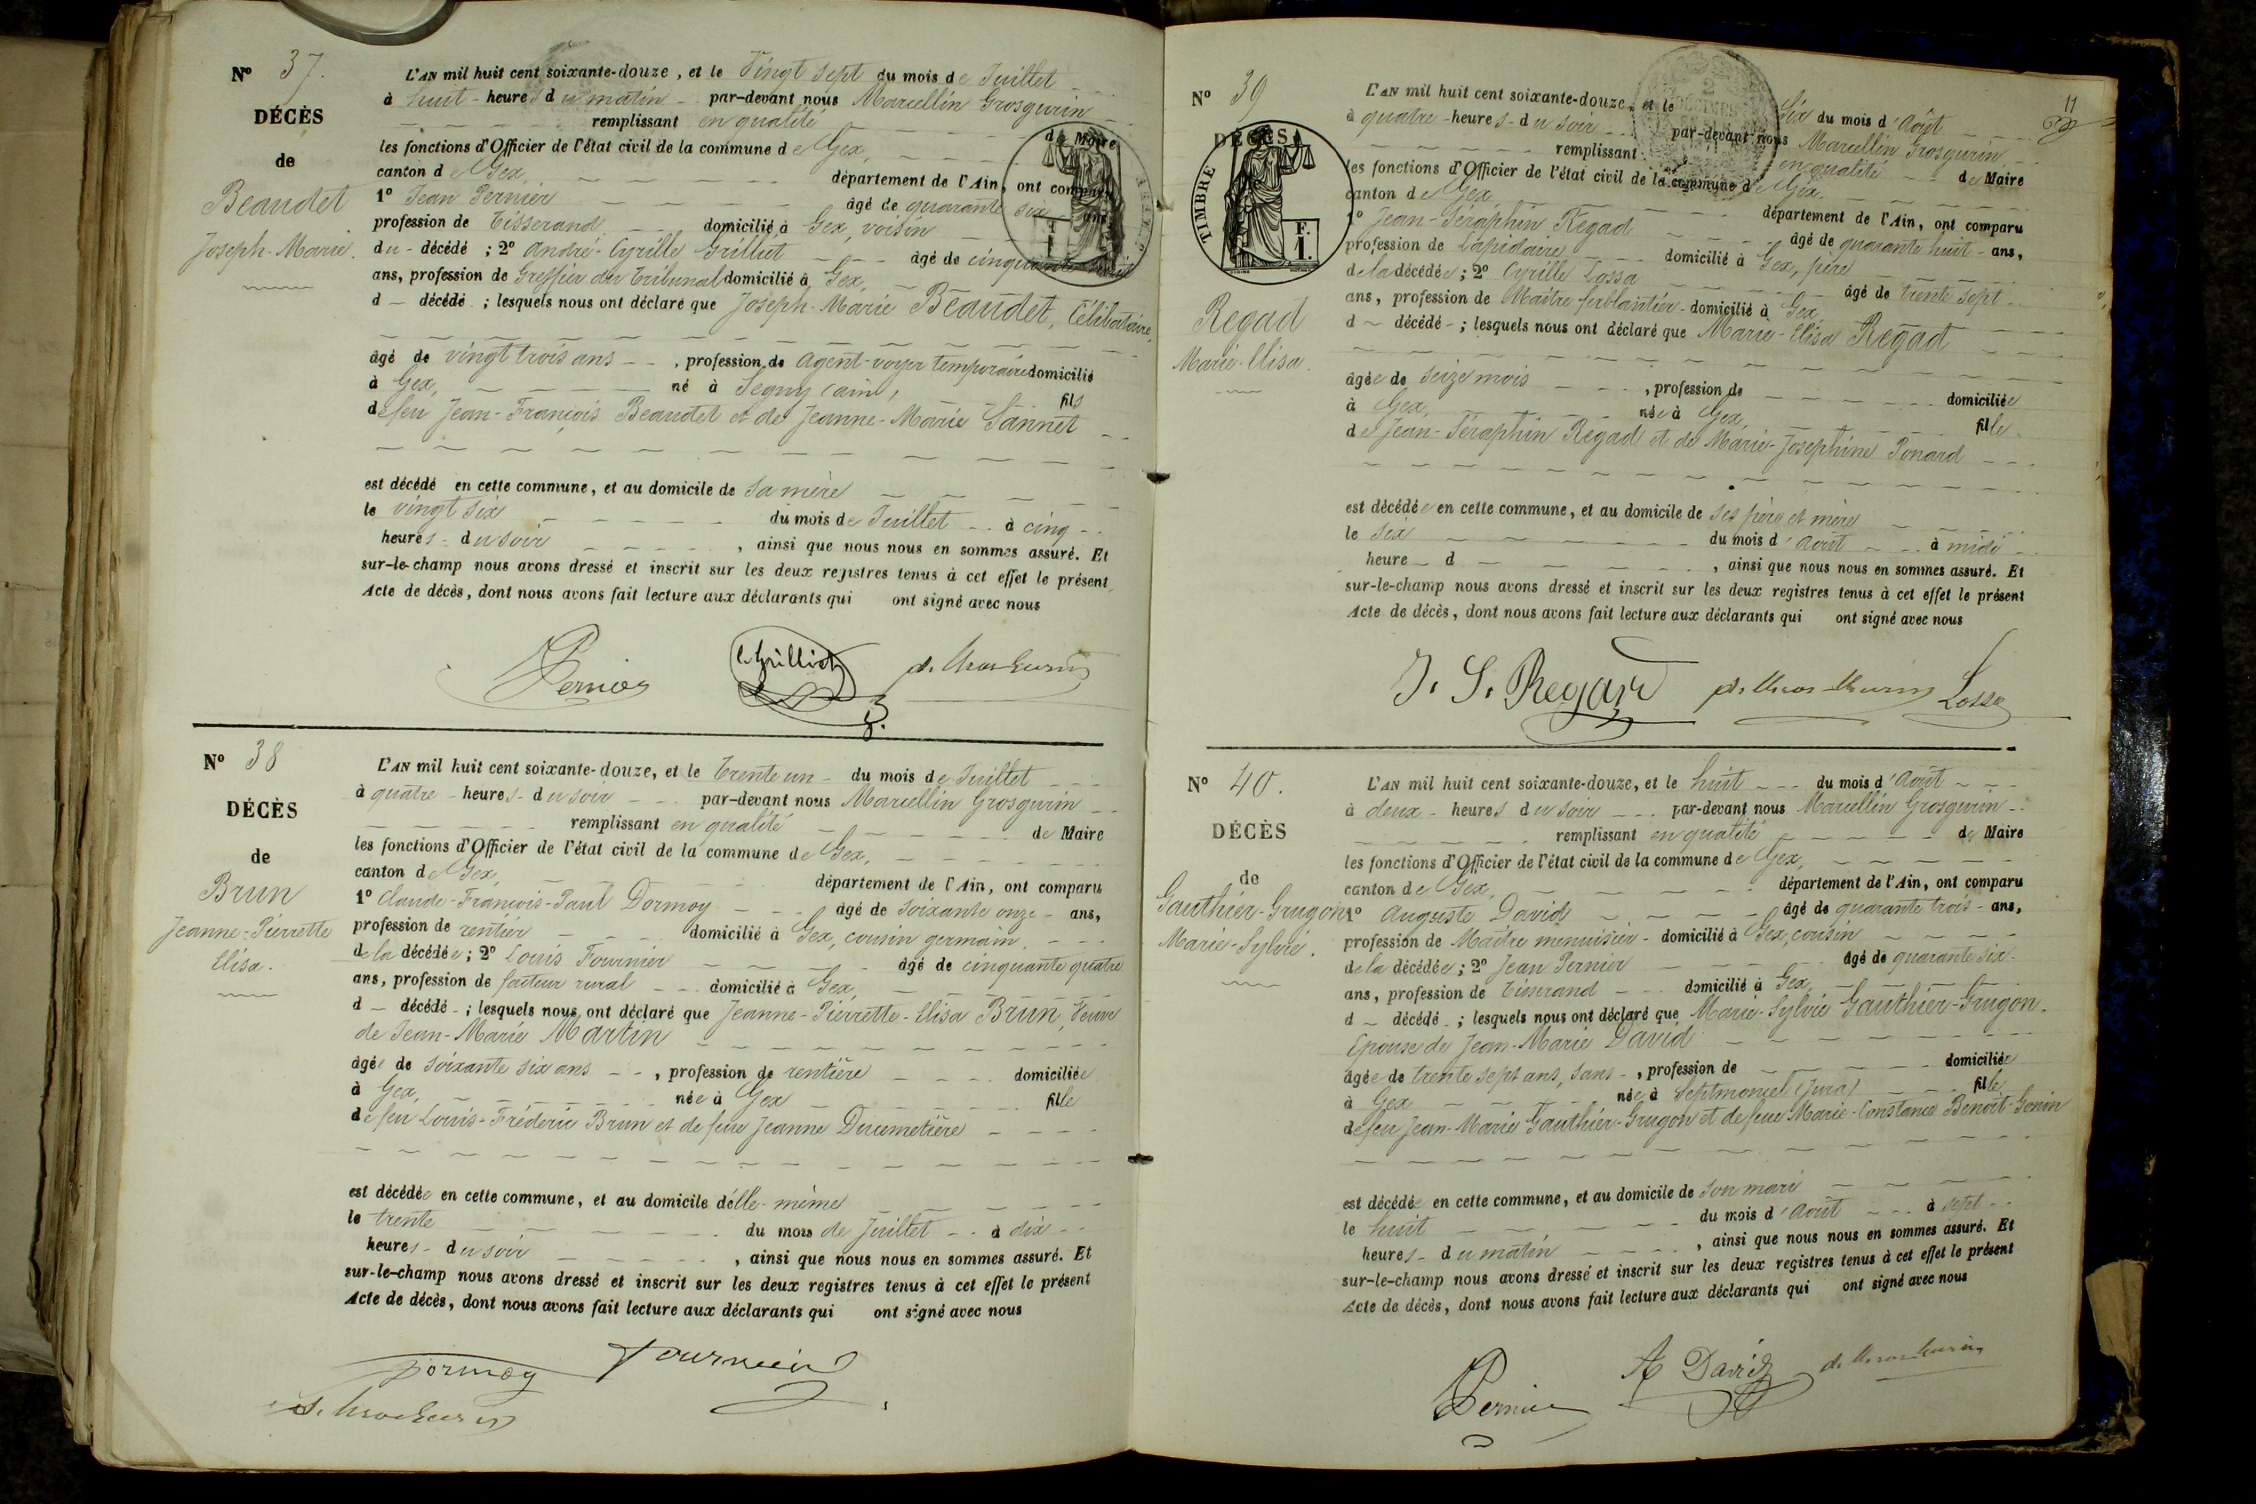 N° 37.
DÉCÈS
de
Beaudet
Joseph-Marie.
L'AN mil huit cent soixante-douze, et le Vingt sept du mois de Juillet
à huit heures du matin par-devant nous Marcellin Grosgurin
remplissant en qualité de Maire
les fonctions d'Officier de l'état civil de la commune de Gex,
canton de Gex, département de l'Ain, ont comparu
1° Jean Pernier âgé de quarante six ans,
profession de Tisserand domicilié à Gex, voisin
du décédé ; 2° André-Cyrille Grilliet âgé de cinquante
ans, profession de Greffier du Tribunal domicilié à Gex,
d décédé ; lesquels nous ont déclaré que Joseph-Marie Beaudet, Célibataire,
âgé de vingt trois ans , profession de Agent-voyer temporaire domicilié
à Gex, né à Segny (ain), fils
de feu Jean-François Beaudet et de Jeanne-Marie Sannet
est décédé en cette commune, et au domicile de sa mère
le vingt six du mois de Juillet à cinq
heures du soir , ainsi que nous nous en sommes assuré. Et
sur-le-champ nous avons dressé et inscrit sur les deux registres tenus à cet effet le présent
Acte de décès, dont nous avons fait lecture aux déclarants qui ont signé avec nous
Pernier
Grilliet
N° 38
DÉCÈS
de
Brun
Jeanne-Pierrette
Elisa.
L'AN mil huit cent soixante-douze, et le Trente un du mois de Juillet
à quatre heures du soir par-devant nous Marcellin Grosgurin
remplissant en qualité de Maire
les fonctions d'Officier de l'état civil de la commune de Gex,
canton de Gex, département de l'Ain, ont comparu
1° Claude-François-Paul Dormoy âgé de soixante onze ans,
profession de rentier domicilié à Gex, cousin germain.
de la décédée ; 2° Louis Fournier âgé de cinquante quatre
ans, profession de facteur rural domicilié à Gex,
d décédé ; lesquels nous ont déclaré que Jeanne-Pierrette-Elisa Brun, Veuve
de Jean-Marie Martin
âgée de soixante six ans , profession de rentière domiciliée
à Gex, née à Gex fille
de feu Louis-Fréderic Brun et de feue Jeanne Ducimetière
est décédée en cette commune, et au domicile d'elle-même
le trente du mois de Juillet à dix
heures du soir , ainsi que nous nous en sommes assuré. Et
sur-le-champ nous avons dressé et inscrit sur les deux registres tenus à cet effet le présent
Acte de décès, dont nous avons fait lecture aux déclarants qui ont signé avec nous
Dormoy Fournier
11
N° 39
DÉCÈS
TIMBRE
F. 1.
Regad
Marie-Elisa.
L'AN mil huit cent soixante-douze, et le Six du mois d'Août
à quatre heures du soir par-devant nous Marcellin Grosgurin
remplissant en qualité de Maire
les fonctions d'Officier de l'état civil de la commune de Gex.
canton de Gex département de l'Ain, ont comparu
1° Jean-Séraphin Regad âgé de quarante huit ans,
profession de Lapidaire domicilié à Gex, père
de la décédée ; 2° Cyrille Lossa âgé de trente sept
ans, profession de Maître ferblantier domicilié à Gex,
d décédé ; lesquels nous ont déclaré que Marie-Elisa Regad
âgée de seize mois , profession de domiciliée
à Gex, née à Gex, fille
de Jean-Séraphin Regad et de Marie-Josephine Ponard
est décédée en cette commune, et au domicile de ses père et mère
le six du mois d'Août à midi
heure d , ainsi que nous nous en sommes assuré. Et
sur-le-champ nous avons dressé et inscrit sur les deux registres tenus à cet effet le présent
Acte de décès, dont nous avons fait lecture aux déclarants qui ont signé avec nous
J. S. Regad Lossa
N° 40.
DÉCÈS
de
Gauthier-Grugon
Marie-Sylvie.
L'AN mil huit cent soixante-douze, et le huit du mois d'Août
à deux heures du soir par-devant nous Marcellin Grosgurin
remplissant en qualité de Maire
les fonctions d'Officier de l'état civil de la commune de Gex,
canton de Gex, département de l'Ain, ont comparu
1° Auguste David âgé de quarante trois ans,
profession de Maître menuisier domicilié à Gex, cousin
de la décédée ; 2° Jean Pernier âgé de quarante six
ans, profession de Tisserand domicilié à Gex,
d décédé ; lesquels nous ont déclaré que Marie-Sylvie Gauthier-Grugon.
Epouse de Jean-Marie David
âgée de trente sept ans, sans , profession de domiciliée
à Gex née à Septmoncel (Jura) fille
de feu Jean-Marie Gauthier-Grugon et de feue Marie-Constance Benoit-Gonin
est décédée en cette commune, et au domicile de son mari
le huit du mois d'Août à sept
heures du matin , ainsi que nous nous en sommes assuré. Et
sur-le-champ nous avons dressé et inscrit sur les deux registres tenus à cet effet le présent
Acte de décès, dont nous avons fait lecture aux déclarants qui ont signé avec nous
Pernier A David